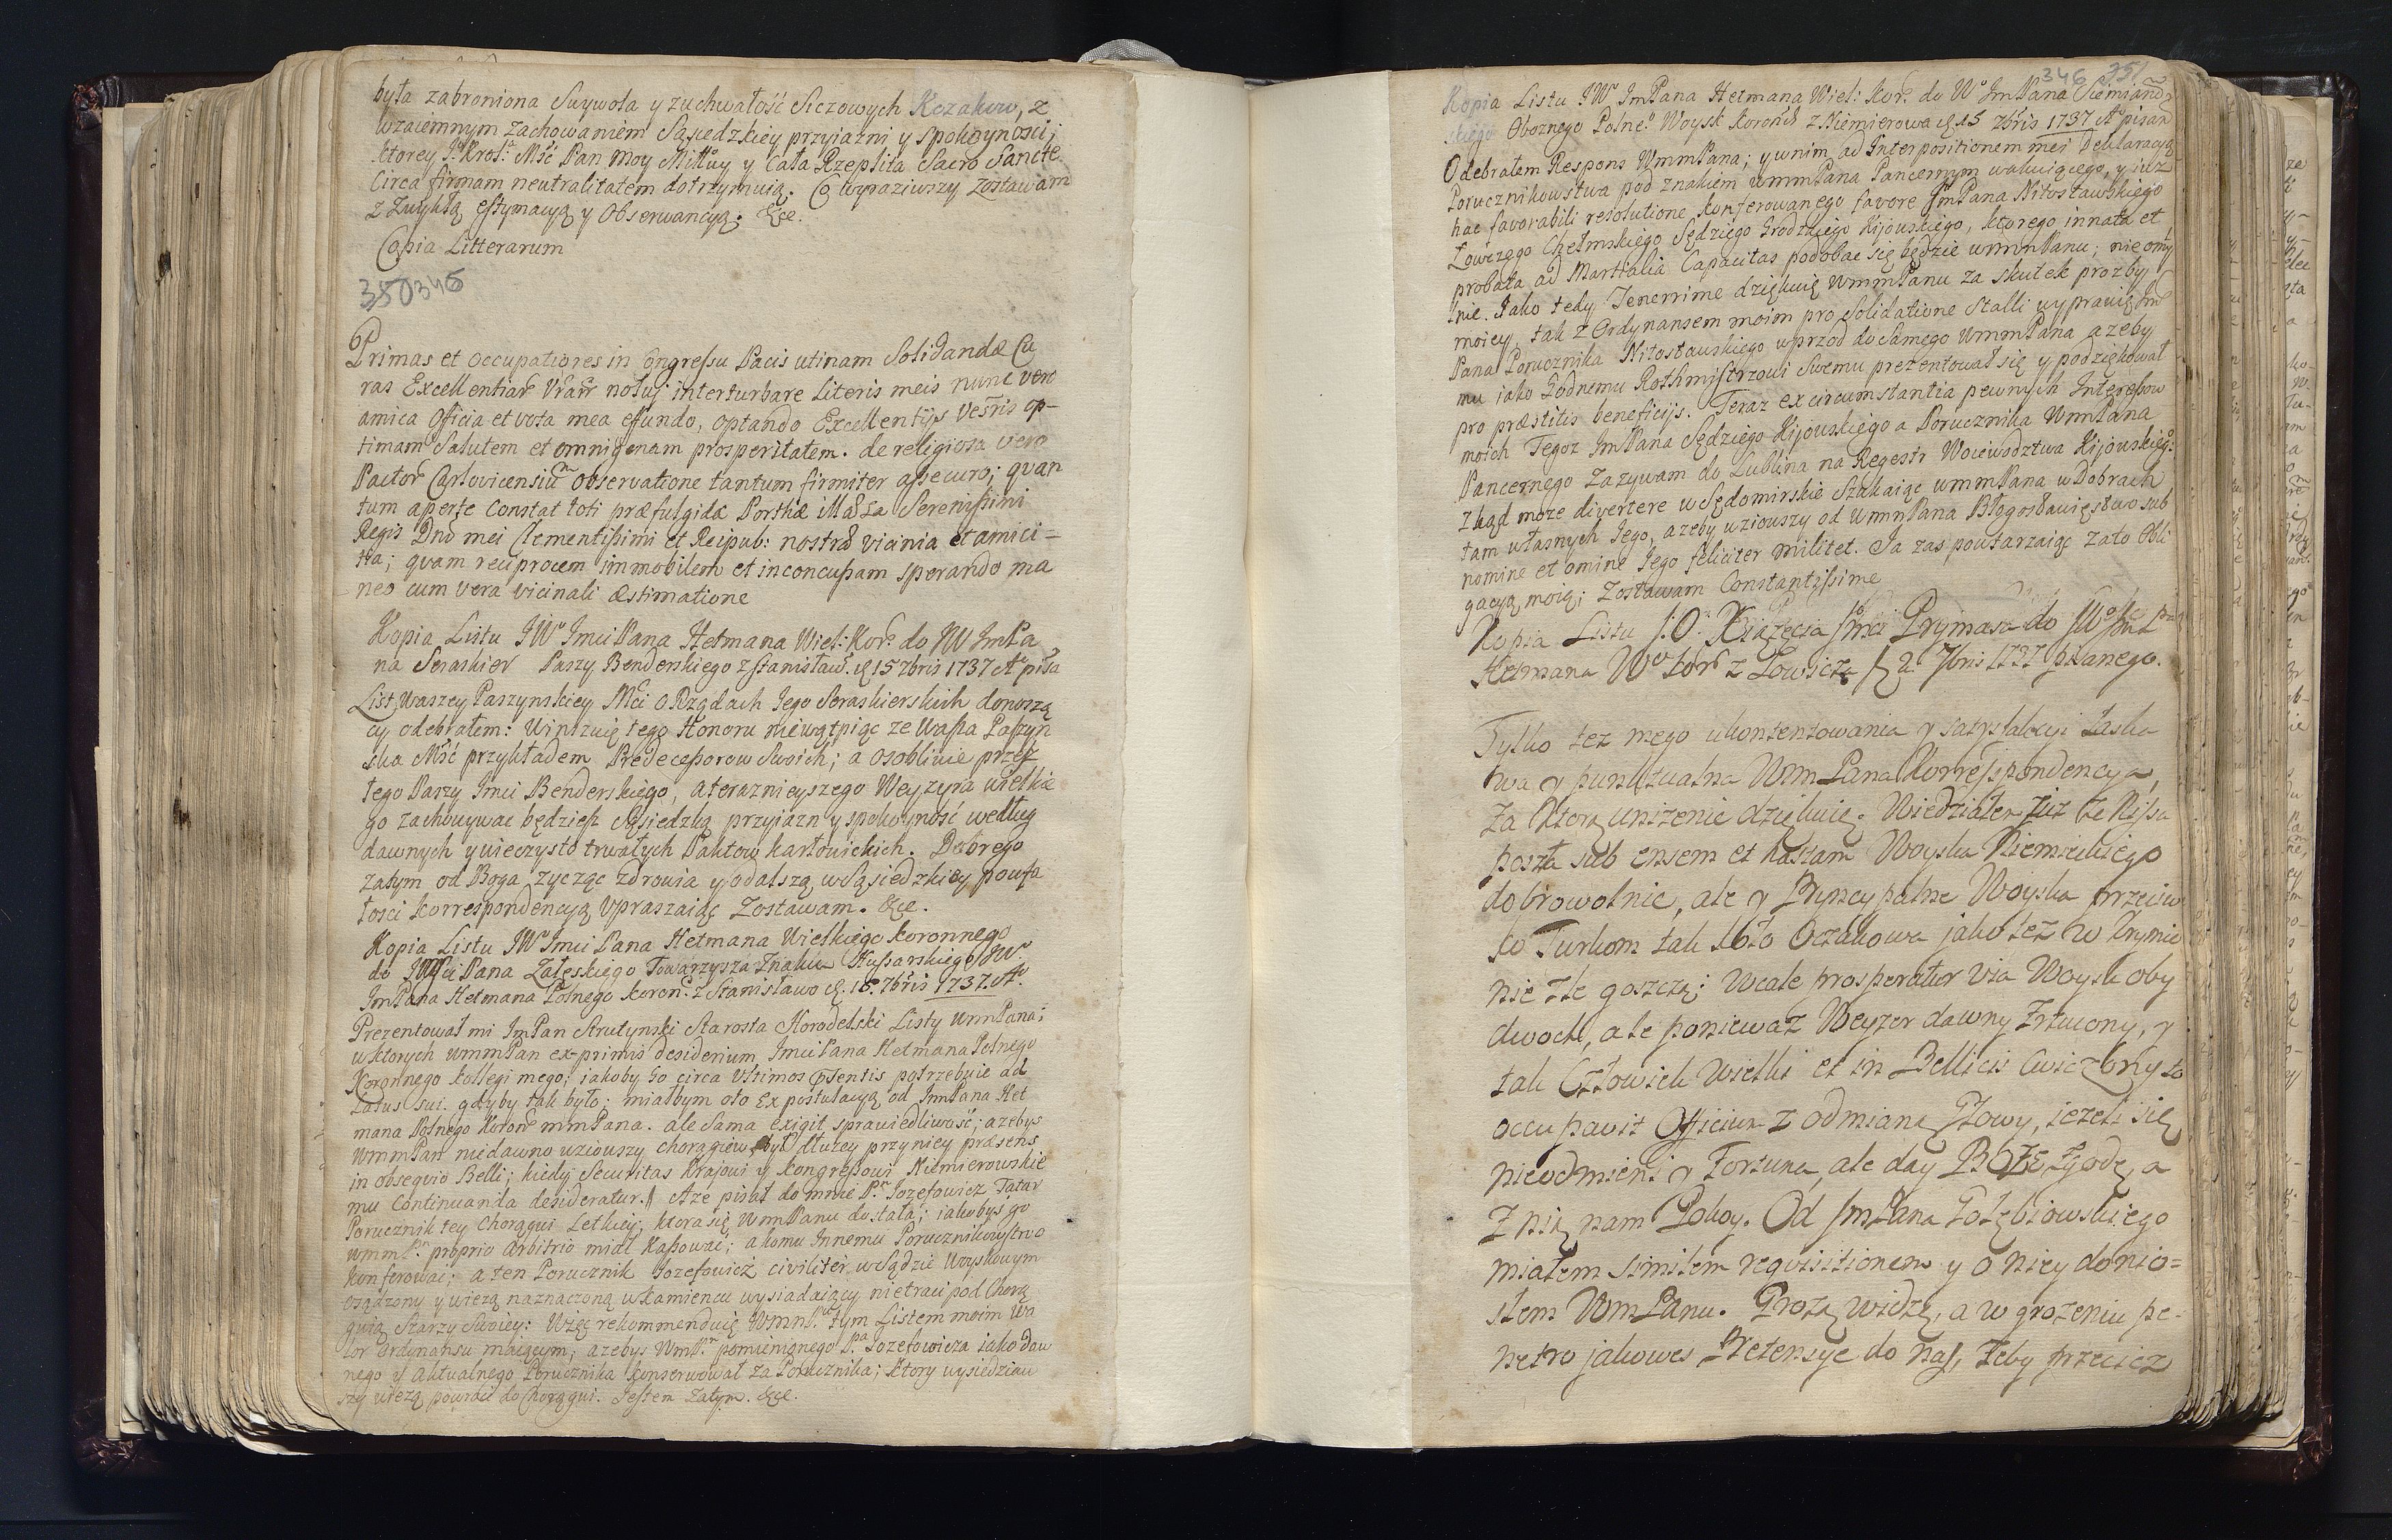 była zabroniona Swywola y zuchwałość Siczowych Kozakow, z
wzaiemnym zachowaniem Sąsiedzkiey przyiazni y Spokoyności;
ktorey J. Krol: Mść Pan moy Miłłuy y Cała Rzeplita Sacro Sancte
Circa firmam neutralitatem dotrzymuią. Co wyraziwszy zostawam
z Zwykłą estymacyą y Obserwancyą. &ce.
Copia Litterarum
350 345
Primas et occupationes in Congressu Pacis utinam Solidandæ Cu
ras Excellentiar Vrar nolui interturbare Literis meis nunc vero
amica officia et vota mea effundo, optando Excellentijs Vestris op-
timam Salutem et omnigenam prosperitatem. de religiosa vero
Pactor Carlovicensiu observatione tantum firmiter assecuro; quan
tum aperte Constat toti præfulgidæ Porthæ illæsa Serenissimi
Regis Dni mei Clementissimi et Reipub: nostræ vicinia et amici=
tia; quam reciprocem immobilem et inconcussam sperando ma
neo cum vera vicinali æstimatione
Kopia Listu JW Imci Pana Hetmana Wiel: Kor: do JW ImPa
na Seraskier Paszy Benderskiego z Stanisław: d. 15 7bris 1737 A pisa
List Waszey Paszynskiey Mci o Rządach Jego Seraskierskich donoszą
cy odebrałem: Winszuię tego Honoru niewątpiąc ze Wasza Paszyń
ska Mść przykładem Predecessorow Swoich; a osobliwie przesz
łego Paszy Imci Benderskiego, a teraznieyszego Weyzyra wielkie
go zachowywac będziesz Sąsiedzką przyiazn y spokoyność według
dawnych y wieczysto trwałych Paktow karłowickich. Dobrego
zatym od Boga zycząc zdrowia y o dalszą w Sąsiedzkiey poufa
łosci korrespondencyą Upraszaiąc Zostawam. &ce.
Kopia Listu JW Imci Pana Hetmana Wielkiego koronnego
do JMci Pana Załęskiego Towarzysza Znaku Hussarskiego JW.
ImPana Hetmana Polnego koron: z Stanisławo d. 16. 7bris 1737. A.
Prezentował mi ImPan Strutynski Starosta Horodelski Listy WmmPana;
w ktorych WmmPan exprimis desiderium Imci Pana Hetmana Polnego
Koronnego kollegi mego; iakoby Go circa Ultimos potrzebuie ad
Latus sui. gdyby tak było; miałbym oto Expostulacyą od ImPana Het
mana Polnego Koron mmPana. ale Sama exigit sprawiedliwość; azebys
WmmPan niedawno wziowszy chorągiew był dłuzey przy niey præsens
in obsequio Belli; kiedy Securitas Krajowi y kongressowi Niemierowskie
mu Continuanda desideratur. Aze pisał do mnie P. Jozefowicz Tatar
Porucznik tey Chorągwi Letkiey, ktora się WmmPanu dostała; iakobys go
WmmP. proprio arbitrio miał Kassowac; a komu Innemu Porucznikowstwo
konferowac; a ten Porucznik Jozefowicz civiliter w Sądzie Woyskowym
osądzony y wiezą naznaczoną w kamiencu wysiadaiący nietraci pod Chorą
gwią Starzy Swoiey: Więc rekommenduię WmmP. tym Listem moim Wa
lor ordynansu maiącym; azebys WmP. pomienionego P. Jozefowicza iako daw
nego y aktualnego Porucznika konserwował za Porucznika; ktory wysiedziaw
szy wiezą powraci do Chorągwi. Jestem Zatym. &ce.
346 351
Kopia Listu JW ImPana Hetmana Wiel: Kor. do W ImPana Siemianow
skiego Oboznego Polne: Woysk Koron: z Niemierowa d. 15 7bris 1737 A pisan
Odebrałem Respons WmmPana; y w nim ad Interpositionem mei Deklaracyą
Porucznikowstwa pod znakiem WmmPana Pancernym wakuiącego, y iuz
hac favorabili resolutione konferowanego favore ImPana Nitosławskiego
Łowczego Chełmskiego Sędziego Grodzkiego Kijowskiego, ktorego innata et
probata ad Martialia Capacitas podobac się będzie WmmPanu; nie omy
lnie. Jako tedy Tenerrime dziękuię WmmPanu za skutek prozby
moiey, tak z Ordynansem moim pro Solidatione Stalli wyprawię Im
Pana Porucznika Nitosławskiego wprzod do Samego WmmPana azeby
mu iako Godnemu Rothmistrzowi Swemu prezentował się y podziękował
pro præstitis beneficijs. Teraz ex circumstantia pewnych Interessow
moich Tegoz ImPana Sędziego Kijowskiego a Porucznika WmmPana
Pancernego Zazywam do Lublina na Regestr Woiewodztwa Kijowskieg:
zkąd moze divertere w Sędomirskie Szukaiąc WmmPana w Dobrach
tam własnych Jego, azeby wziowszy od WmmPana Błogosławięstwo sub
nomine et omine Jego feliciter militet. Ja zas powtarzaiąc zato Obli
gacyą moią; Zostawam Constantissime
Kopia Listu J.O. Xiążęcia Jmci Prymasa do JW Jm Pna
Hetmana W Kor z Łowicza d. 2. 7bris 1737 pisanego.
Tylko tez mego ukontentowania y satysfakcyi Łaska
wa y punktualna WmPana Korrespondencya,
za ktorą uniżenie dziękuię. Wiedziałem już że Nissa
poszła sub ensem et hastam Woyska Niemieckiego
dobrowolnie, ale y Pryncypalne Woyska przeciw
ko Turkom tak koło Oczakowa jako też w Krymie
nie źle goszczą; Wcale prosperatur via Woysk oby
dwoch, ale ponieważ Weyzer dawny zrzucony, y
tak Człowiek Wielki et in Bellicis Cwiczony to
occupavit Officium z odmianą Głowy, ieżeli się
nieodmieni y Fortuna, ale day BOŻE Zgodę, a
z nią nam Pokoy. Od JmPana Gołębiowskiego
miałem similem requisitionem y o niey donio=
słem WmPanu. Grozą widzę, a w grożeniu pe-
netro jakowes Pretensye do nas, żeby przeciez